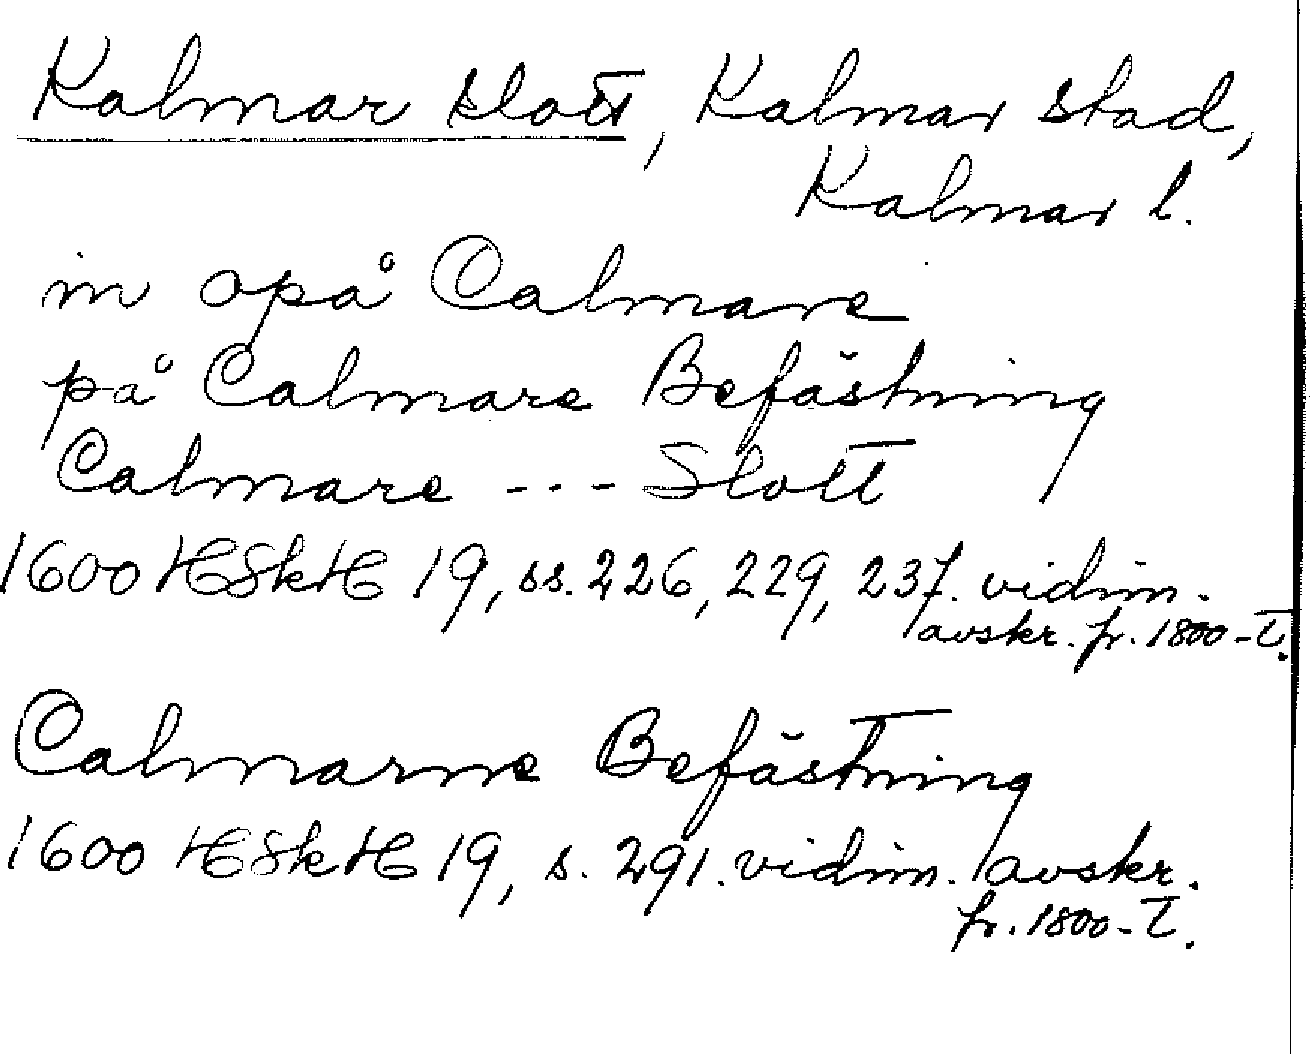 Kalmar slott, Kalmar stad,
Kalmar l.
in opå Calmare
på Calmare Befästning
Calmare --- Slott
1600 HSkH 19, ss. 226, 229, 237. vidim.
avskr. fr. 1800-t.
Calmarne Befästning
1600 HSkH 19, s. 291. vidim. avskr.
fr. 1800-t.